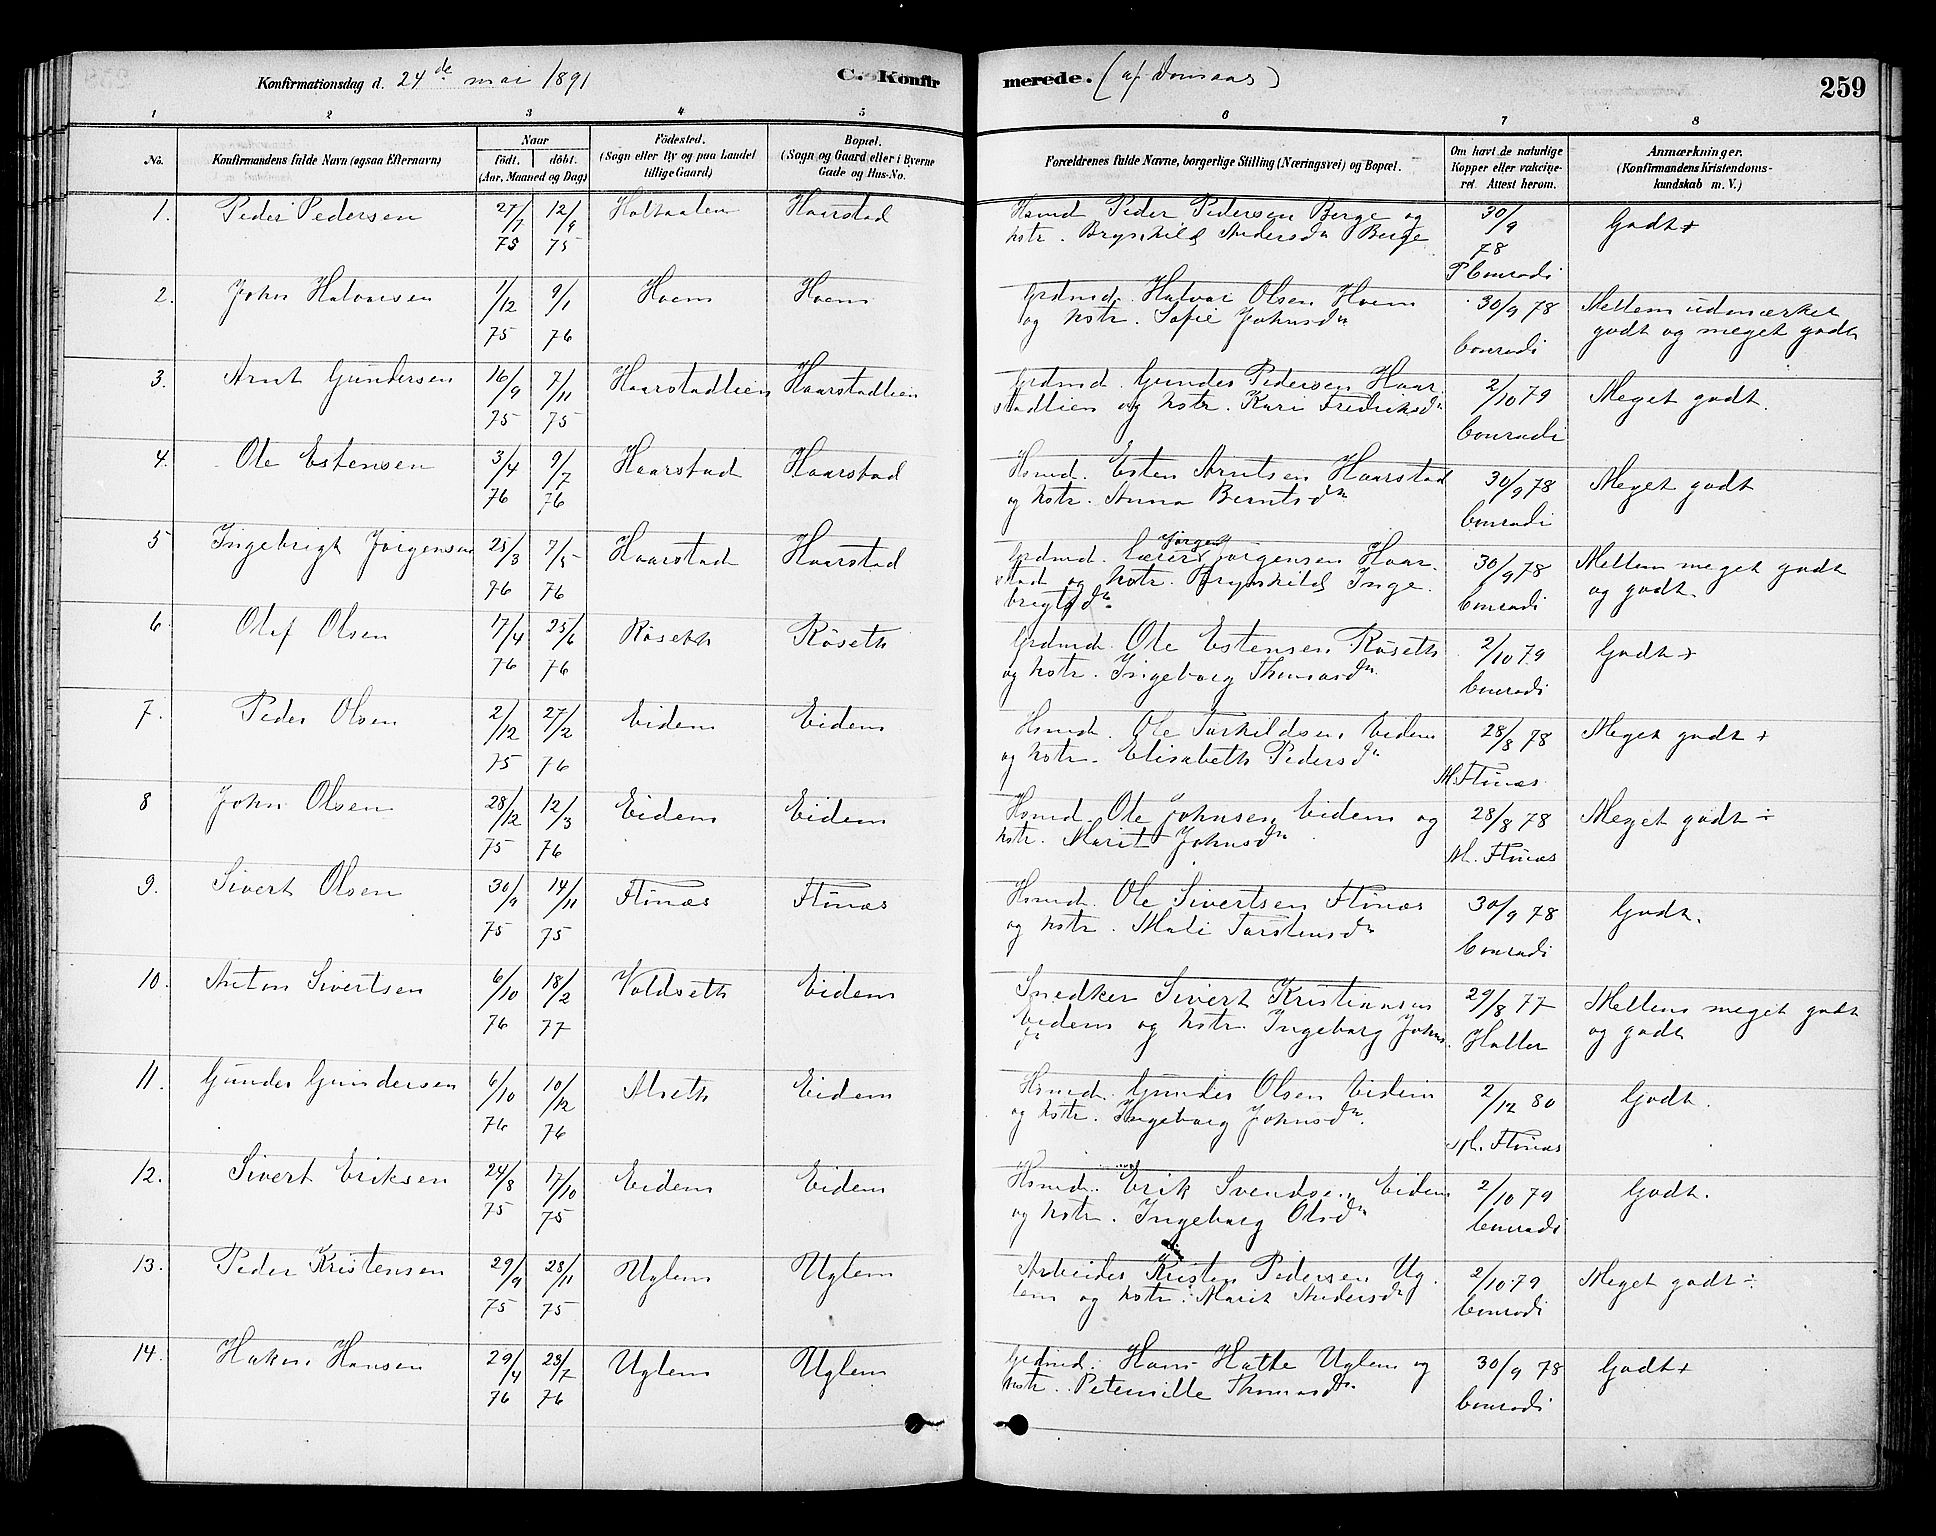 Konfirmationsdag d. 24de mai 1891 C. Konfirmerede. (af Domaas) 259
1 2 3 4 5 6 7 8
No. Konfirmandens fulde Navn (ogsaa Efternavn) Naar Födt. döbt. (Aar, Maaned og Dag) Födested. (Sogn eller By og paa Landet tillige Gaard) Bopæl. (Sogn og Gaard eller i Byerne Gade og Hus-No. Forældrenes fulde Navne, borgerlige Stilling (Næringsvei) og Bopæl. Om havt de naturlige Kopper eller vakcineret. Attest herom. Anmærkninger. (Konfirmandens Kristendomskundskab m. V.)
1. Peder Pedersen 27/7 75 12/9 75 Haltaalen Haarstad Hsmd Peder Pedersen Berge og
hstr. Brynhild Andersdn Berge 30/9 78 P Conradi Godt +
2. John Halvorsen 1/12 75 9/1 76 Hoem Hoem Grdmd. Halvor Olsen Hoem
og hstr. Sofie Johnsdn 30/9 78 Conradi Mellem udmærket
godt og meget godt
3. Arnt Gundersen 16/9 75 7/11 75 Haarstadlien Haarstadlien Grdmd. Gunder Pedersen Haar-
stadlien og hstr. Kari Fredriksdn 2/10 79 Conradi Meget godt.
4. Ole Estensen 3/4 76 9/7 76 Haarstad Haarstad Hsmd. Esten Arntsen Haarstad
og hstr. Anna Berntsdn 30/9 78 Conradi Meget godt
5 Ingebrigt Jörgensen 25/3 76 7/5 76 Haarstad Haarstad Grdmd. Jörgen Jörgensen Haar-
stad og hstr. Brynhild Inge-
brigtsdn 30/9 78 Conradi Mellem meget godt
og godt.
6. Olaf Olsen 17/4 76 25/6 76 Röseth Röseth Grdmd. Ole Estensen Röseth
og hstr. Ingeborg Thomasdn 2/10 79 Conradi Godt +
7. Peder Olsen 2/12 75 27/2 76 Eidem Eidem Hsmd. Ole Tarkildsen Eidem
og hstr. Elisabeth Pedersdn 28/8 78 M. Flinæs Meget godt +
8 John Olsen 28/12 75 12/3 76 Eidem Eidem Hsmd. Ole Johnsen Eidem og
hstr. Marit Johnsdn 28/8 78 M. Flinæs Meget godt ÷
9. Sivert Olsen 30/9 75 14/11 75 Flinæs Flinæs Hsmd. Ole Sivertsen Flinæs
og hstr. Mali Tarstensdn 30/9 78 Conradi Godt.
10. Anton Sivertsen 6/10 76 18/2 77 Voldseth Eidem Snedker Sivert Kristiansen
Eidem og hstr. Ingeborg Johns-
dn 29/8 77 Halter Mellem meget godt
og godt
11. Gunder Gundersen 6/10 76 10/12 76 Alseth Eidem Hsmd. Gunder Olsen Eidem
og hstr. Ingeborg Johnsdn. 2/12 80 M. Flinæs Godt.
12. Sivert Eriksen 24/8 75 17/10 75 Eidem Eidem Hsmd. Erik Svendsen Eidem
og hstr. Ingeborg Olsdn 2/10 79 Conradi Godt.
13. Peder Kristensen 29/9 75 28/11 75 Uglem Uglem Arbeider Kristen Pedersen Ug-
lem og hstr. Marit Andersdn 2/10 79 Conradi Meget godt ÷
14. Haken Hansen 29/4 76 23/7 76 Uglem Uglem Grdmd. Hans Uglem og
hstr. Peternille Thomasdn 30/9 78 Conradi Godt +